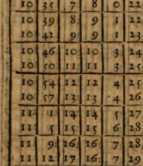 10 35 7 8 0 22
10 39 8 9 1 22
10 42 9 9 1 23
10 46 10 10 3 24
10 50 11 3 25
10 54 12 12 4 25
10 57 13 13 4 26
11 1 14 14 5 27
11 5 15 6 28
11 9 16 16 7 28
11 12 17 16 29